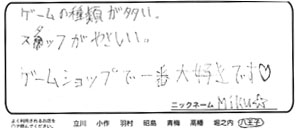 ゲームの種類が多い。
スタッフがやさしい。
ゲームショップで一番大好きです♡
ニックネーム Miku☆
よく利用されるお店を
立川 小作 羽村 昭島 青梅 高幡 堀之内 八王子